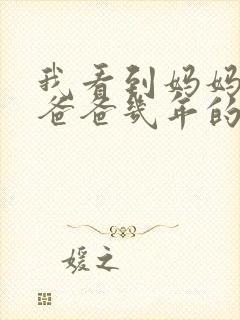 我看到妈妈
爸爸几年的
媛之